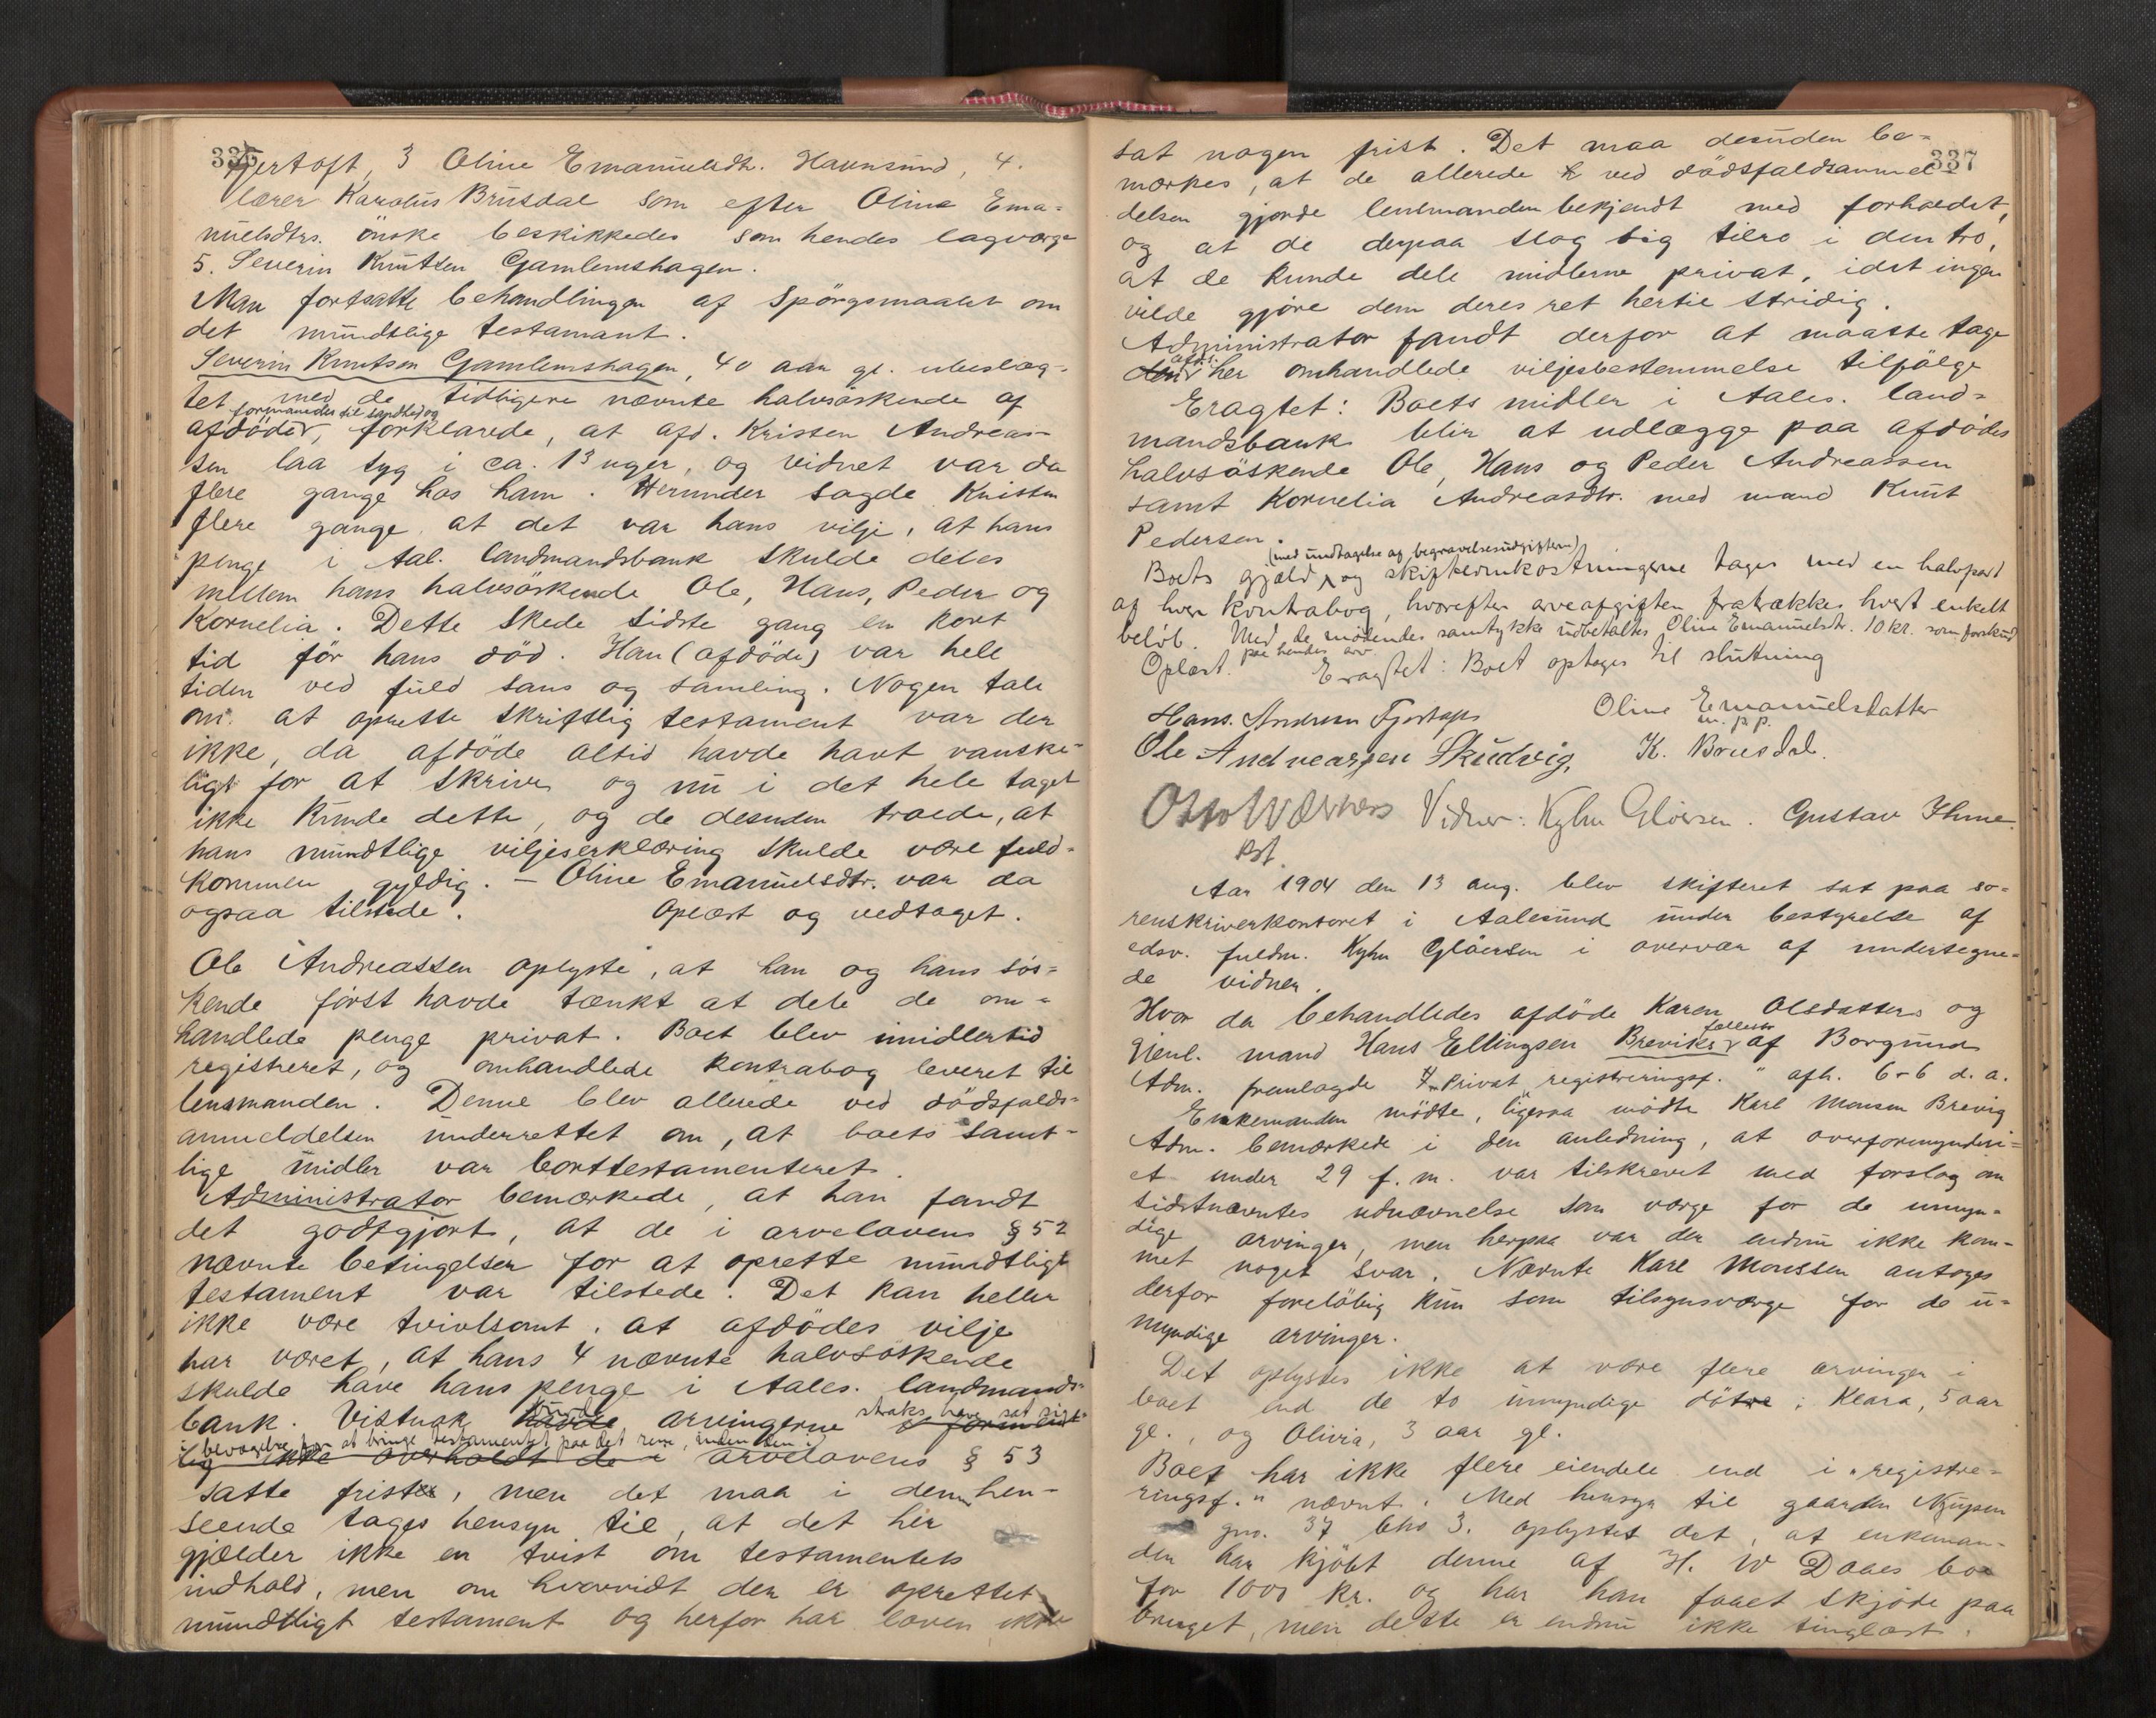 336
Fjertoft, 3 Oline Emanuelsdtr. Havnsund, 4.
lærer Karolus Brusdal som efter Oline Ema-
nuelsdtrs. ønske beskikkedes som hendes lagværge
5. Severin Knutsen Gamlemshagen.
Man fortsatte behandlingen af spørgsmaalet om
det mundtlige testament.
Severin Knutsen Gamlemshagen, 40 aar gl. ubeslæg-
tet med de tidligere nævnte halvsøskende af
formanedes til sandhed og
afdøde, forklarede, at afd. Kristen Andreas-
sen laa syg i ca. 13 uger, og vidnet var da
flere gange hos ham. Herunder sagde Kristen
flere gange at det var hans vilje, at hans
penge i Aal. landmandsbank skulde deles
mellem hans halvsøskende Ole, Hans, Peder og
Kornelia. Dette skede sidste gang en kort
tid før hans død. Han (afdøde) var hele
tiden ved fuld sans og samling. Nogen tale
om at oprette skriftlig testament var der
ikke, da afdøde altid havde havt vanske-
ligt for at skrive og nu i det hele taget
ikke kunde dette, og de desuden troede, at
hans mundtlige viljeserklæring skulde være fuld-
kommen gyldig. – Oline Emanuelsdtr. var da
ogsaa tilstede. Oplæst og vedtaget.
Ole Andreassen oplyste, at han og hans søs-
kende først havde tænkt at dele de om-
handlede penge privat. Boet blev imidlertid
registreret, og omhandlede kontrabog leveret til
lensmanden. Denne blev allerede ved dødsfalds-
anmeldelsen underrettet om, at boets samt-
lige midler var borttestamenteret.
Administrator bemærkede, at han fandt
det godtgjort, at de i arvelovens § 52
nævnte betingelser for at oprette mundtligt
testament var tilstede. Det kan heller
ikke være tvivlsomt, at afdødes vilje
har været, at hans 4 nævnte halvsøskende
skulde have hans penge i Aales. landmands-
bank. Vistnok burde arvingerne straks have sat sig
i bevægelse for at bringe testamentet paa det rene, inden den i
arvelovens § 53
satte frist, men det maa i den hen-
seende tages hensyn til, at det her
gjælder ikke en tvist om testamentets
indhold, men om hvorvidt der er oprettet
mundtligt testament og herfor har loven ikke
337
sat nogen frist. Det maa desuden be-
mærkes, at de allerede ved dødsfaldsanmel-
delsen gjorde lensmanden bekjendt med forholdet,
og at de derpaa slog sig tilro i den tro,
at de kunde dele midlerne privat, idet ingen
vilde gjøre dem deres ret hertil stridig.
Administrator fandt derfor at maatte tage
her omhandlede viljesbestemmelse tilfølge
Eragtet: Boets midler i Aales. land-
mandsbank blir at udlægge paa afdødes
halvsøskende Ole, Hans og Peder Andreassen
samt Kornelia Andreasdtr. med mand Knut
Pedersen.
(med undtagelse af begravelsesudgifterne)
Boets gjæld og skifteomkostningerne tages med en halvpart
af hver kontrabog, hvorefter arveafgiften fratrækkes hvert enkelt
beløb. Med de mødendes samtykke udbetaltes Oline Emanuelsdtr. 10 kr. som forskud
paa hendes arv.
Oplæst. Eragtet: Boet optages til slutning
Hans Andresen Fjertoft Oline Emanuelsdatter
m. p. p.
Ole Andreassen Skudvig, K. Brusdal.
Vidner: Kyhn Gløersen. Gustav Ihme.
kst.
Aar 1904 den 13 aug. blev skifteret sat paa so-
renskriverkontoret i Aalesund under bestyrelse af
edsv. fuldm. Kyhn Gløersen i overvær af undertegne-
de vidner.
Hvor da behandledes afdøde Karen Olsdatters og
gjenl. mand Hans Ellingsen Breviks fællesbo af Borgund
Adm. fremlagde "Privat registreringsf." afh. 6-6 d. a.
Enkemanden mødte, ligesaa mødte Karl Monsen Brevig
Adm. bemærkede i den anledning, at overformynderi-
et under 29 f. m. var tilskrevet med forslag om
sidstnævntes udnævnelse som værge for de umyn-
dige arvinger, men herpaa var der endnu ikke kom-
met noget svar. Nævnte Karl Monssen antoges
derfor foreløbig kun som tilsynsværge for de u-
myndige arvinger.
Det oplystes ikke at være flere arvinger i
boet end de to umyndige døtre: Klara, 5 aar
gl., og Olivia, 3 aar gl.
Boet har ikke flere eiendele end i "registre-
ringsf." nævnt. Med hensyn til gaarden
gno. 37 bno 3. oplystes det, at enkeman-
den har kjøbt denne af H. W Daaes bo
for 1000 kr. og har han faaet skjøde paa
bruget, men dette er endnu ikke tinglæst.